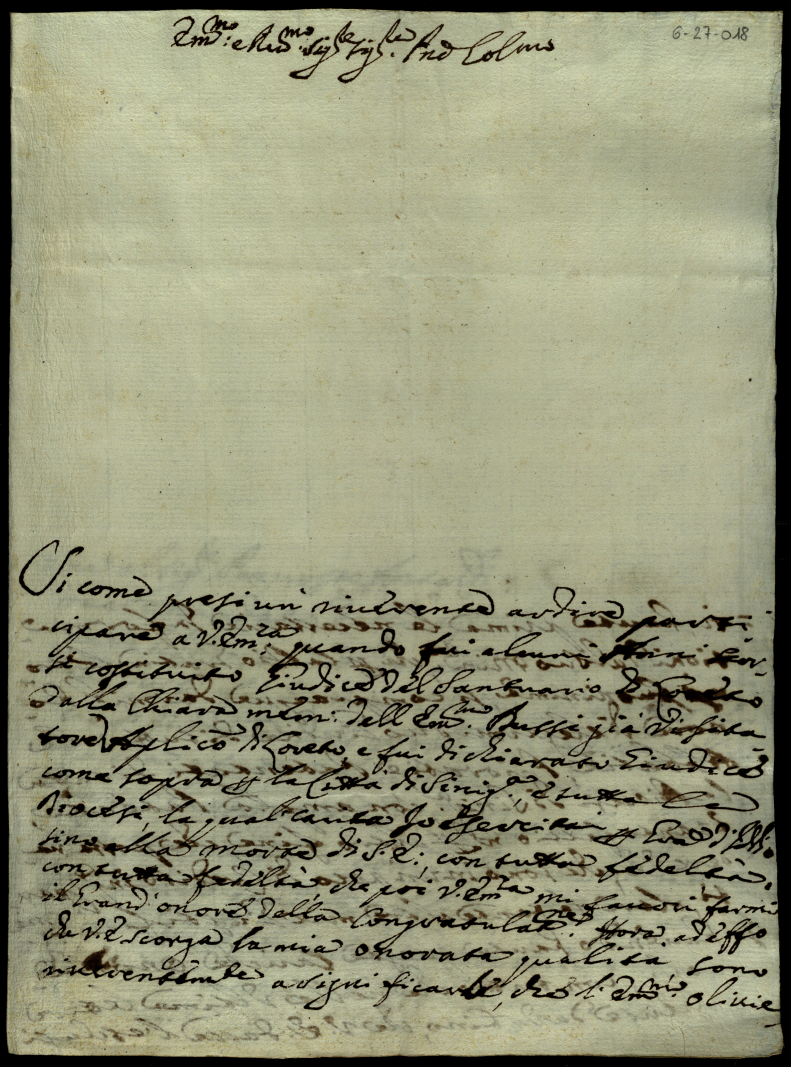 6-27-018
Em.mo e Rev.mo Sig.re Sig.re P.ne Col.mo
Si come presi un riverente ardire parti
cipare a V. Em.za quando fui alcuni
costituito Giudice del Santuario di Loreto
dalla Chiara mem: dell'Em.mo Bussi già Visita
tore Ap.lico di Loreto e fui dichiarato Giudice
come sopra p la Città di Sinig.a, e tutta la
Diocesi, la qual carica Io esercitai p
sino alla morte di S. E: con tutta fedeltà,
con tutta fedeltà che poi V. Em.za mi favorì farmi
il Grand'onore della Congratulat.ne Hora adesso
che V. E scorga la mia onorata qualità, sono
riverentem.te a significarle, che l'Em.mo Olivie